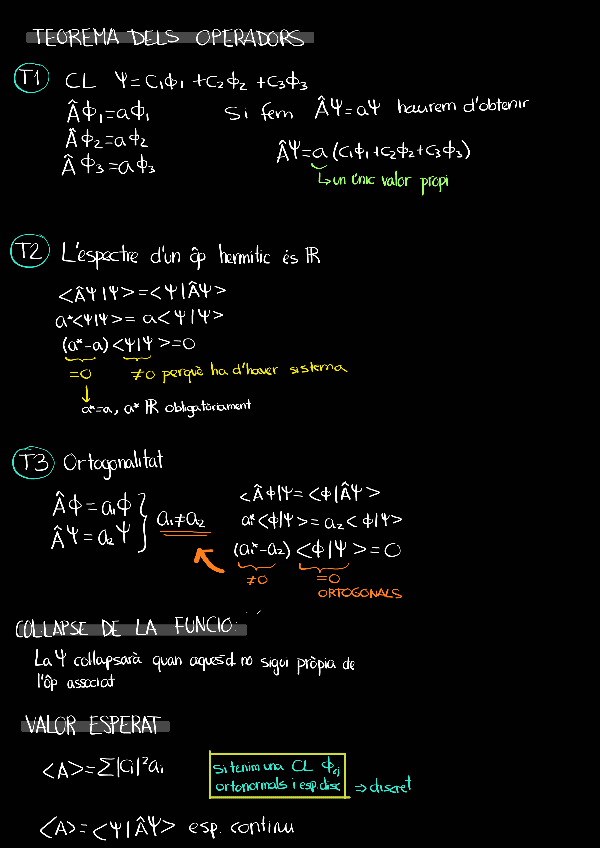 TEOREMA DELS OPERADORS
T1 CL Ψ=C₁ϕ₁+C₂ϕ₂+C₃ϕ₃
Âϕ₁=aϕ₁ Si fem ÂΨ=aΨ haurem d'obtenir
Âϕ₂=aϕ₂
Âϕ₃=aϕ₃ ÂΨ=a(C₁ϕ₁+C₂ϕ₂+C₃ϕ₃)
↳un únic valor propi
T2 L'espectre d'un ôp hermític és ℝ
<ÂΨ|Ψ>=<Ψ|ÂΨ>
a*<Ψ|Ψ>=a<Ψ|Ψ>
(a*-a)<Ψ|Ψ>=0
=0 ≠0 perquè ha d'haver sistema
↓
a*=a, a* ℝ obligatòriament
T3 Ortogonalitat
Âϕ=a₁ϕ
ÂΨ=a₂Ψ } a₁≠a₂
<Âϕ|Ψ=<ϕ|ÂΨ>
a*<ϕ|Ψ>=a₂<ϕ|Ψ>
(a₁*-a₂)<ϕ|Ψ>=0
≠0 =0
ORTOGONALS
COLLAPSE DE LA FUNCIÓ:
La Ψ collapsarà quan aquesta no sigui pròpia de
l'ôp associat
VALOR ESPERAT
<A>=Σ|Ci|²ai
Si tenim una CL ϕ
ortonormals i esp.disc ⇒discret
<A>=<Ψ|ÂΨ> esp. continu